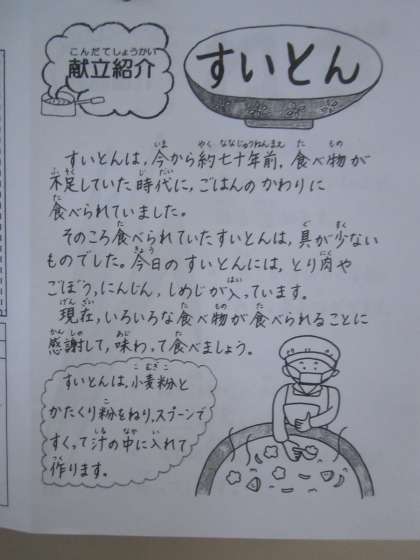 こんだてしょうかい
献立紹介
すいとん
すいとんは,今から約七十年前,食べ物が
不足していた時代に,ごはんのかわりに
食べられていました。
そのころ食べられていたすいとんは,具が少ない
ものでした。今日のすいとんには,とり肉や
ごぼう,にんじん,しめじが入っています。
現在,いろいろな食べ物が食べられることに
感謝して,味わって食べましょう。
すいとんは,小麦粉と
かたくり粉をねり,スプーンで
すくって汁の中に入れて
作ります。